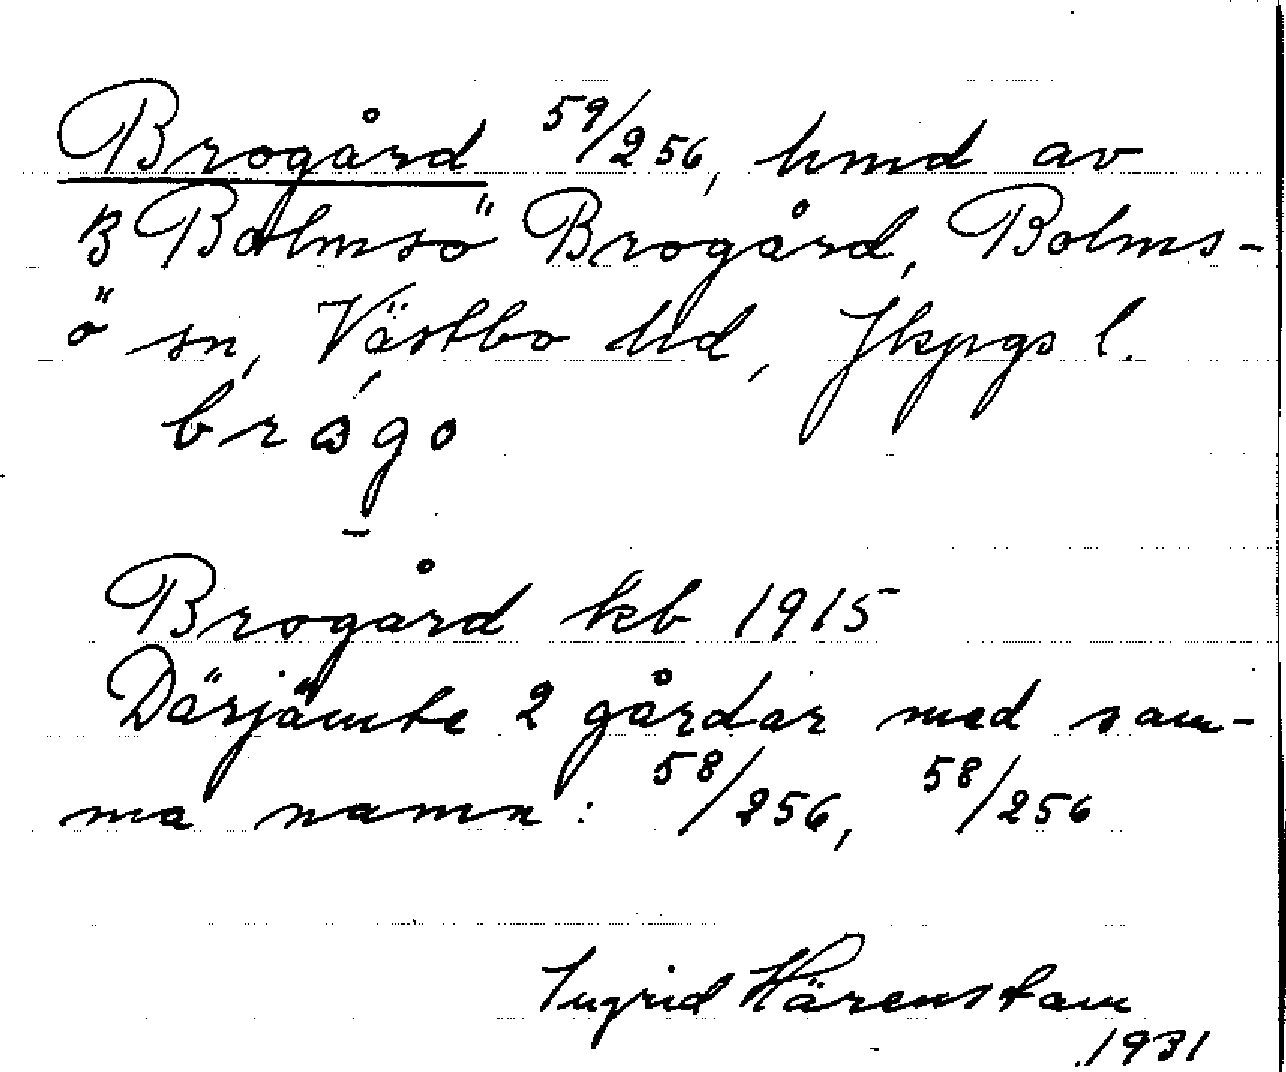 Brogård 59/256, hmd av
B Bolmsö Brogård, Bolms-
ö sn, Västbo hd, Jkpgs l.
brògo
Brogård kb 1915
Därjämte 2 gårdar med sam-
ma namn: 58/256, 58/256
Ingrid Härenstam
1931